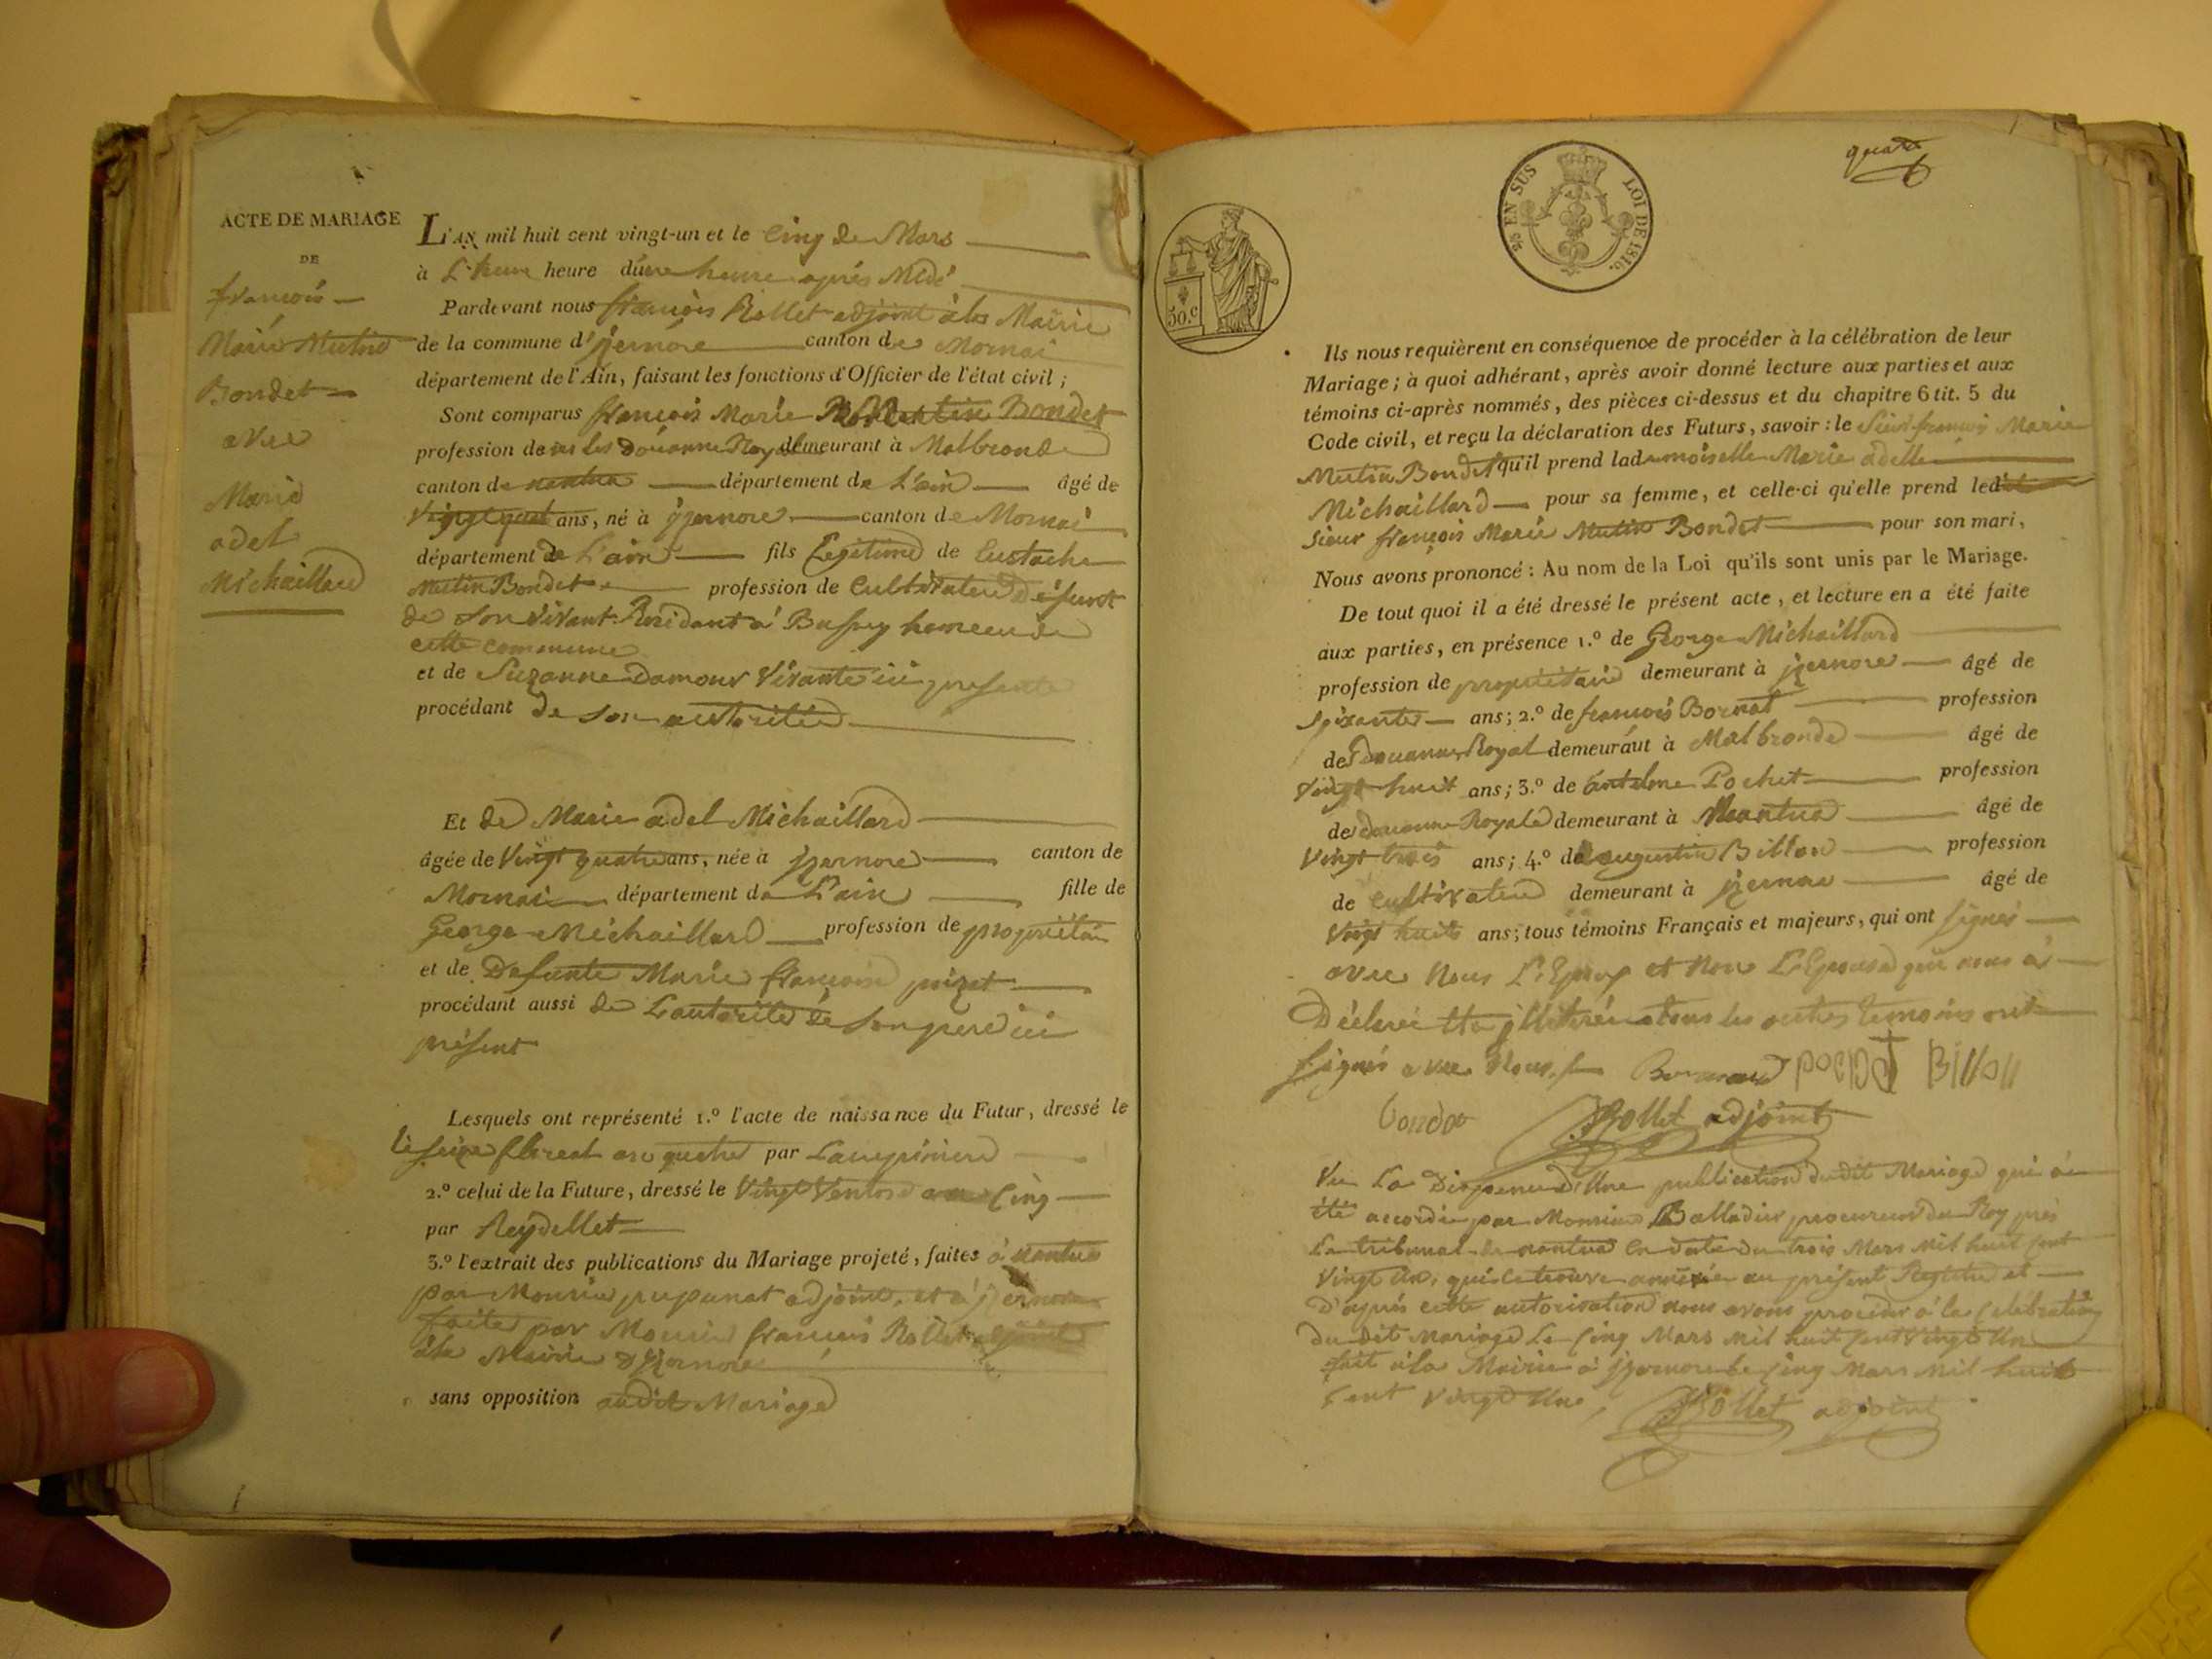 ACTE DE MARIAGE
DE
françois
Marie Mutin
Bondet
avec
Marie
adel
Michaillard
L'AN mil huit cent vingt-un et le Cinq de Mars
à L'heure heure d'une heure après Midi
Pardevant nous françois Rollet adjoint à la Mairie
de la commune d'jzernore canton de Mornai
département de l'Ain, faisant les fonctions d'Officier de l'état civil ;
Sont comparus françois Marie Mutin Bondet
profession dans les douanne Royalle demeurant à Malbronde
canton de nantua département de L'ain âgé de
Vingt quat ans, né à jzernore canton de Mornai
département de L'ain fils Legitime de Eustache
Mutin Bondet profession de Cultivateur Défunt
de son vivant Residant à Bussy hameau de
cette commune
et de Suzanne Damour Vivante ici presente
procédant de son autoritée
Et de Marie adel Michaillard
âgée de Vingt quatre ans, née à jzernore canton de
Mornai département de L'ain fille de
George Michaillard profession de propriétair
et de Defunte Marie françoise
procédant aussi de L'autorité de son pere ici
présent
Lesquels ont représenté 1.º l'acte de naissance du Futur, dressé le
le seize floreal an quatre par
2.º celui de la Future, dressé le Vingt Ventose an Cinq
par Reydellet
3.º l'extrait des publications du Mariage projeté, faites à nantua
par Monsieur adjoint, et à jzernore
faite par Monsieur françois Rollet adjoint
à la Mairie d'jzernore
sans opposition audit Mariage
quatr
2/10 EN SUS LOI DE 1816.
50.c
Ils nous requièrent en conséquence de procéder à la célébration de leur
Mariage ; à quoi adhérant, après avoir donné lecture aux parties et aux
témoins ci-après nommés, des pièces ci-dessus et du chapitre 6 tit. 5 du
Code civil, et reçu la déclaration des Futurs, savoir : le Sieur françois Marie
Mutin Bondet qu'il prend lademoiselle Marie adelle
Michaillard pour sa femme, et celle-ci qu'elle prend ledit
Sieur françois Marie Mutin Bondet pour son mari,
Nous avons prononcé : Au nom de la Loi qu'ils sont unis par le Mariage.
De tout quoi il a été dressé le présent acte, et lecture en a été faite
aux parties, en présence 1.º de George Michaillard
profession de propriétaire demeurant à jzernore âgé de
Soixante ans ; 2.º de françois Bornat profession
des douannes Royal demeuraut à Malbronde âgé de
Vingt huit ans ; 3.º de antelme Pochet profession
des douanne Royale demeurant à Nantua âgé de
Vingt trois ans ; 4.º de augustin Billon profession
de Cultivateur demeurant à jzernore âgé de
Vingt huits ans ; tous témoins Français et majeurs, qui ont signés
avec Nous L'Epoux et Non L'Epouse qui nous à
Déclaré tous les autres temoins ont
signés avec Nous pochet Billon
bondet Rollet adjoint
Vu La Dispense d'Une publication dudit Mariage qui a
été accordée par Monsieur Balladier procureur du Roy près
Le tribunal de nantua en date du trois Mars mil huit cent
Vingt Un, qui se trouve annexée au présent Registre et
D'après cette autorisation nous avons procéder à la Celebration
du dit Mariage Le Cinq Mars mil huit cent Vingt Un
fait à la Mairie à jzernore le Cinq Mars mil huit
Cent Vingt Un, Rollet adjoint